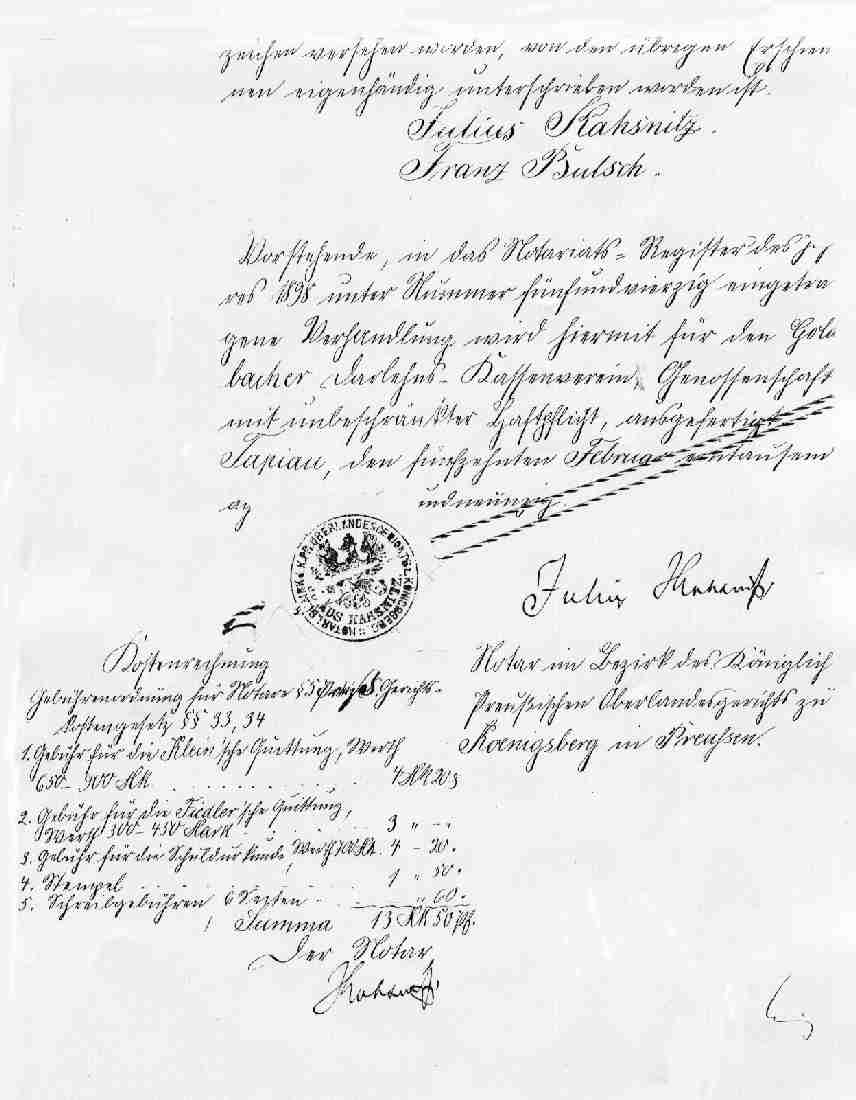 zeichen versehen worden, von den übrigen Erschien
nen eigenhändig unterschrieben worden ist.
Julius Kahsnitz.
Franz Butsch.
Vorstehende, in das Notariats-Register des
res 1898 unter Nummer fünfundvierzig eingetra
gene Verhandlung wird hiermit für den Gola
bacher Darlehns-Kassenverein, Genossenschaft
mit unbeschränkter Haftpflicht, ausgefertigt
Tapiau, den fünfzehnten Februar
undneunzig.
Julius Kahsnitz
Notar im Bezirk des Königlich
Preußischen Oberlandesgerichts zu
Koenigsberg in Preussen.
Kostenrechnung
Gebührenordnung für Notare Gerichts-
kostengesetz §§ 33, 34
1. Gebühr für die Klein'sche Quittung, Werth
650-900 Mk. 4 Mk 20
2. Gebühr für die Fiedler'sche Quittung,
Werth 300-450 Mark 3 " - "
3. Gebühr für die Schuldurkunde, Werth 4 - 20.
4. Stempel 1 " 50.
5. Schreibgebühren 6 Seiten " 60.
Summa 13 Mk 50 Pf.
Der Notar
Kahsnitz